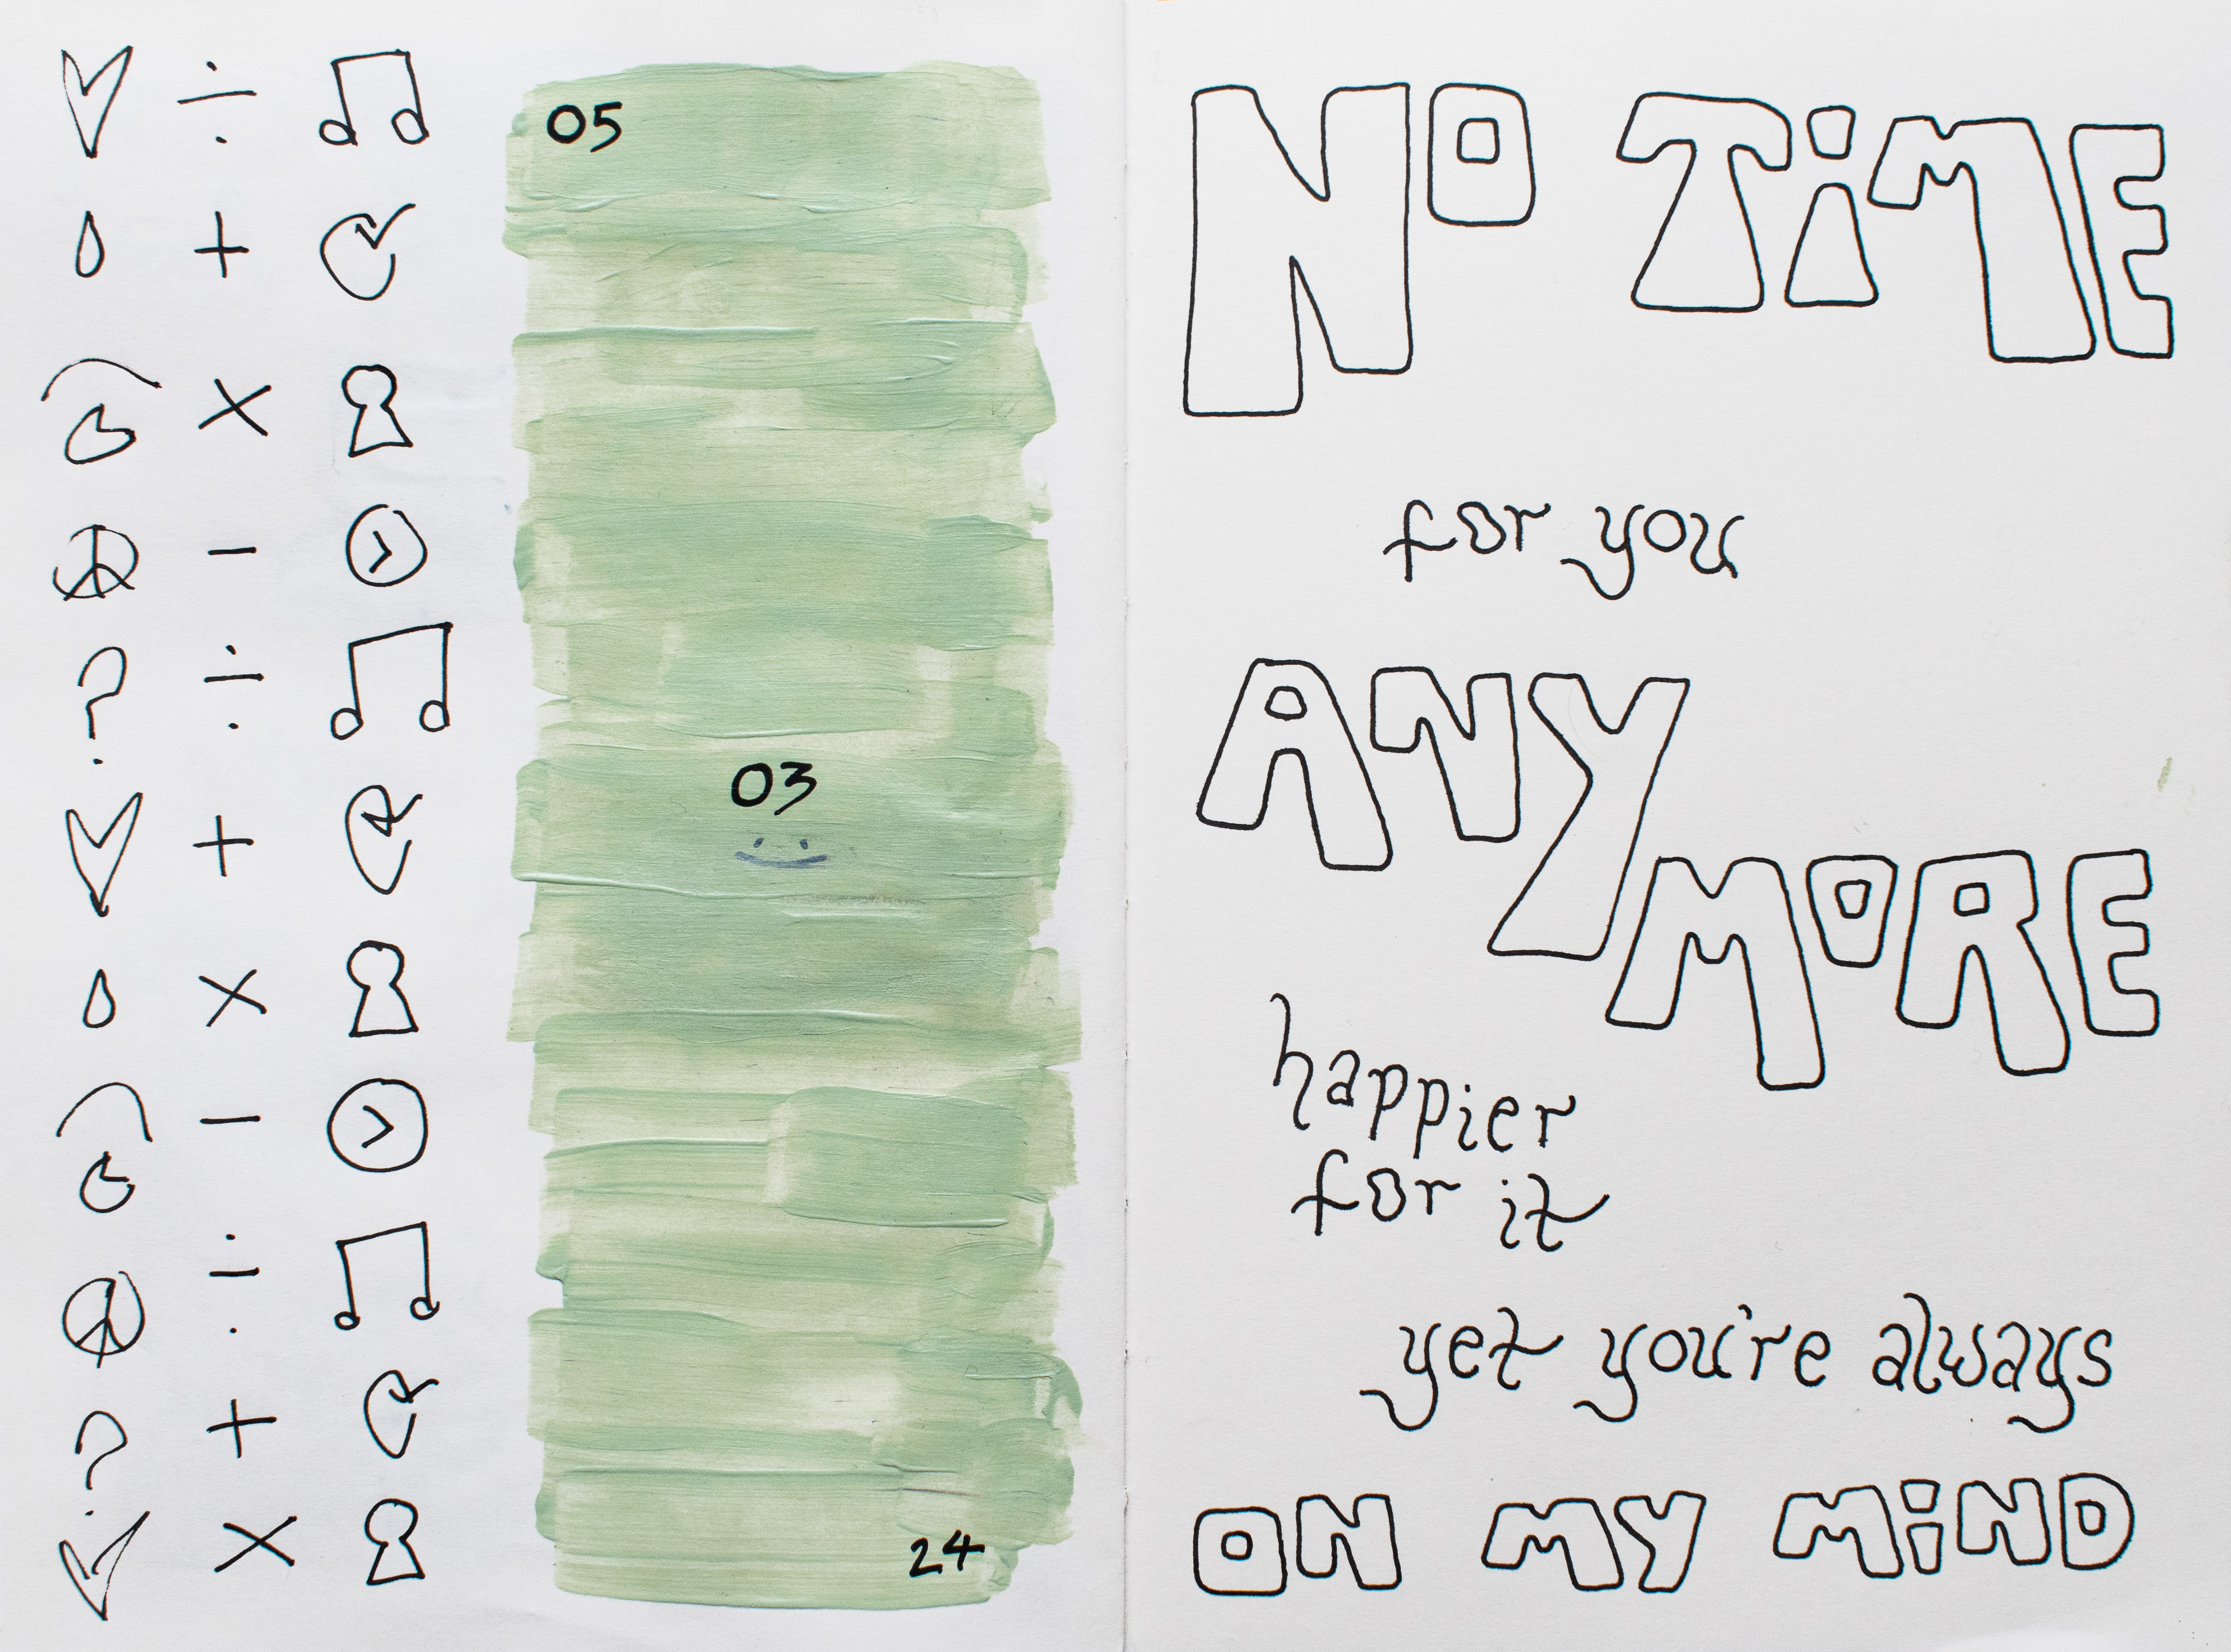 05
03
24
NO TiME
for you
ANY
MORE
happier
for it
yet you're always
ON MY MiND